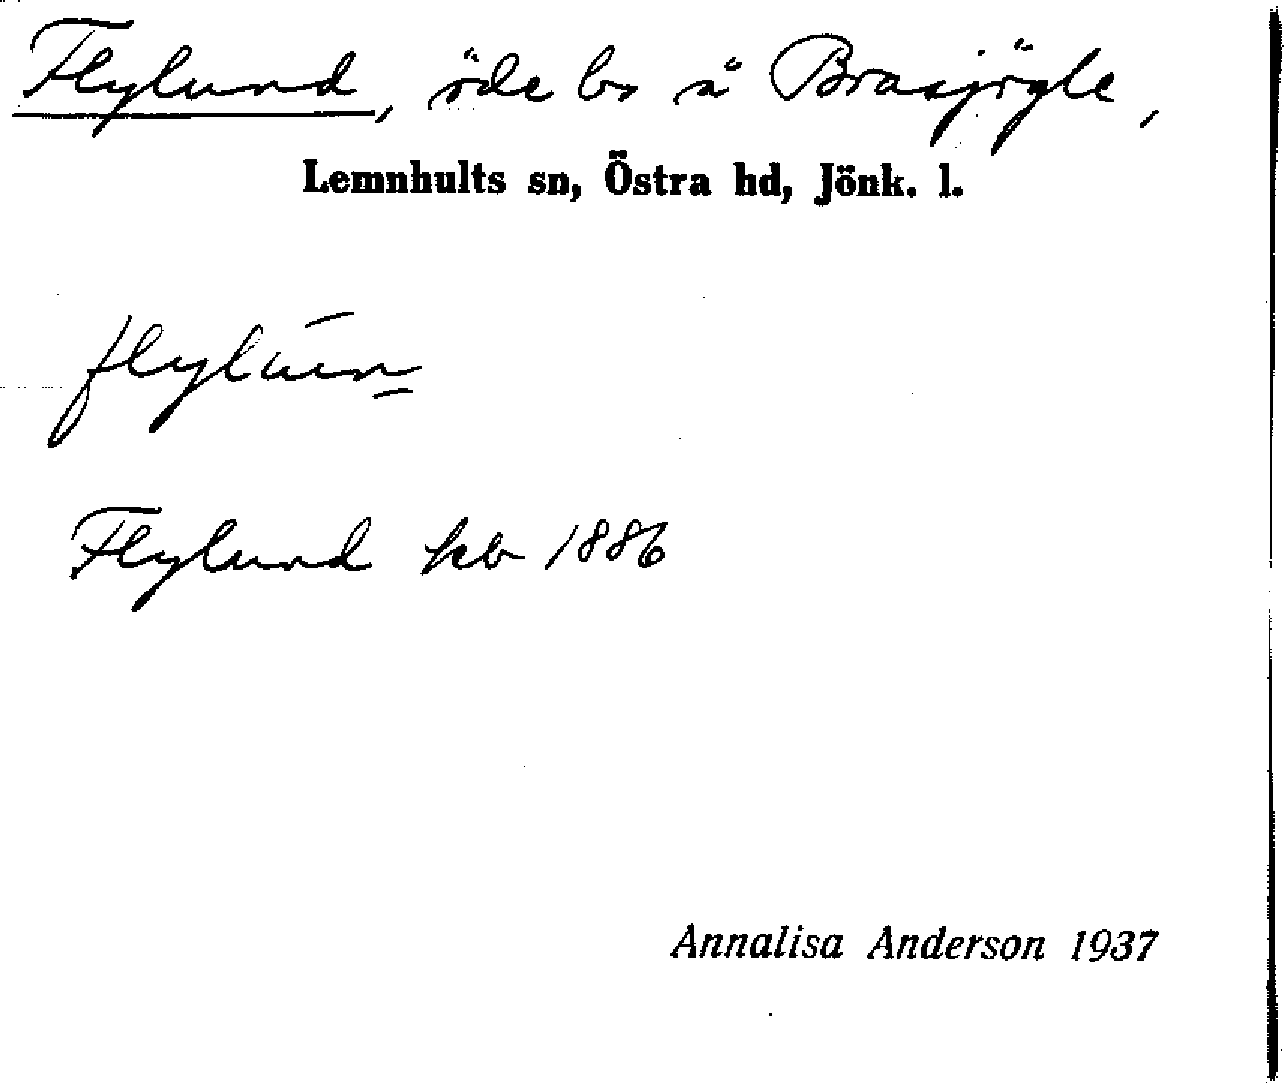 Flylund, öde bs å Brasjögle,
Lemnhults sn, Östra hd, Jönk. l.
flylun
Flylund kb 1886
Annalisa Anderson 1937